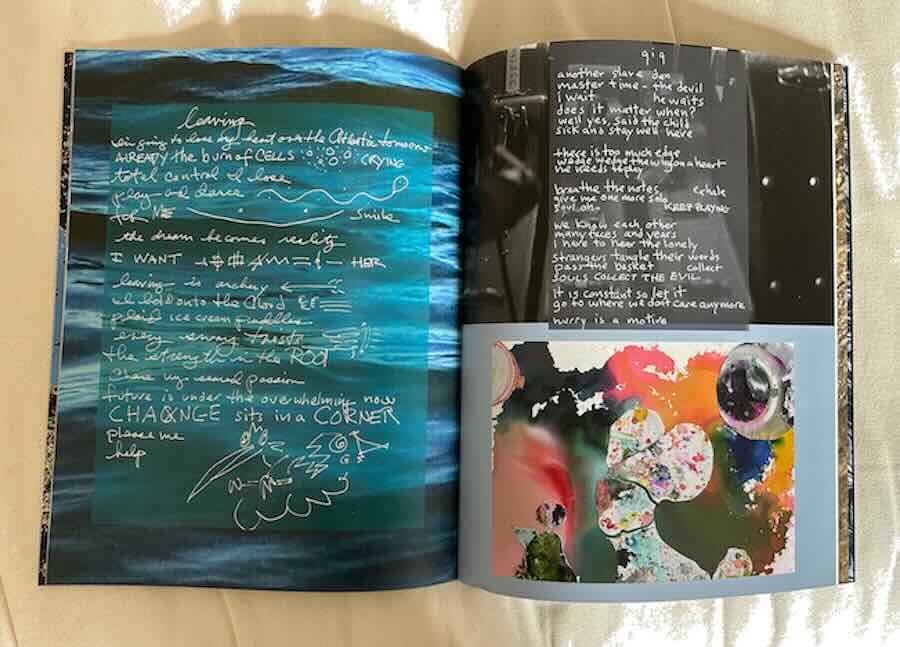 leaving
going to lose my heart over the Atlantic tomorrow
ALREADY the burn of CELLS CRYING
total control I lose
play and dance
for ME Smile
the dream becomes reality
I WANT HER
leaving is archery
I hold onto the Cloud
plaid ice cream puddles
every nerving twists
the strength in the ROOT
share my second passion
future is under the overwhelming now
CHAONGE sits in a CORNER
please me
help
gig
another slave den
master time - the devil
I wait he waits
does it matter when?
well yes, said the child
sick and stay well here
there is too much edge
wedge the whyon a heart
he needs to play
breathe the notes, exhale
give me one more solo
KEEP PLAYING
we know each other
many faces and years
I have to hear the lonely
strangers tangle their words
pass the basket collect
SOULS COLLECT THE EVIL
it is constant so let it
go to where we dont care anymore
hurry is a motive